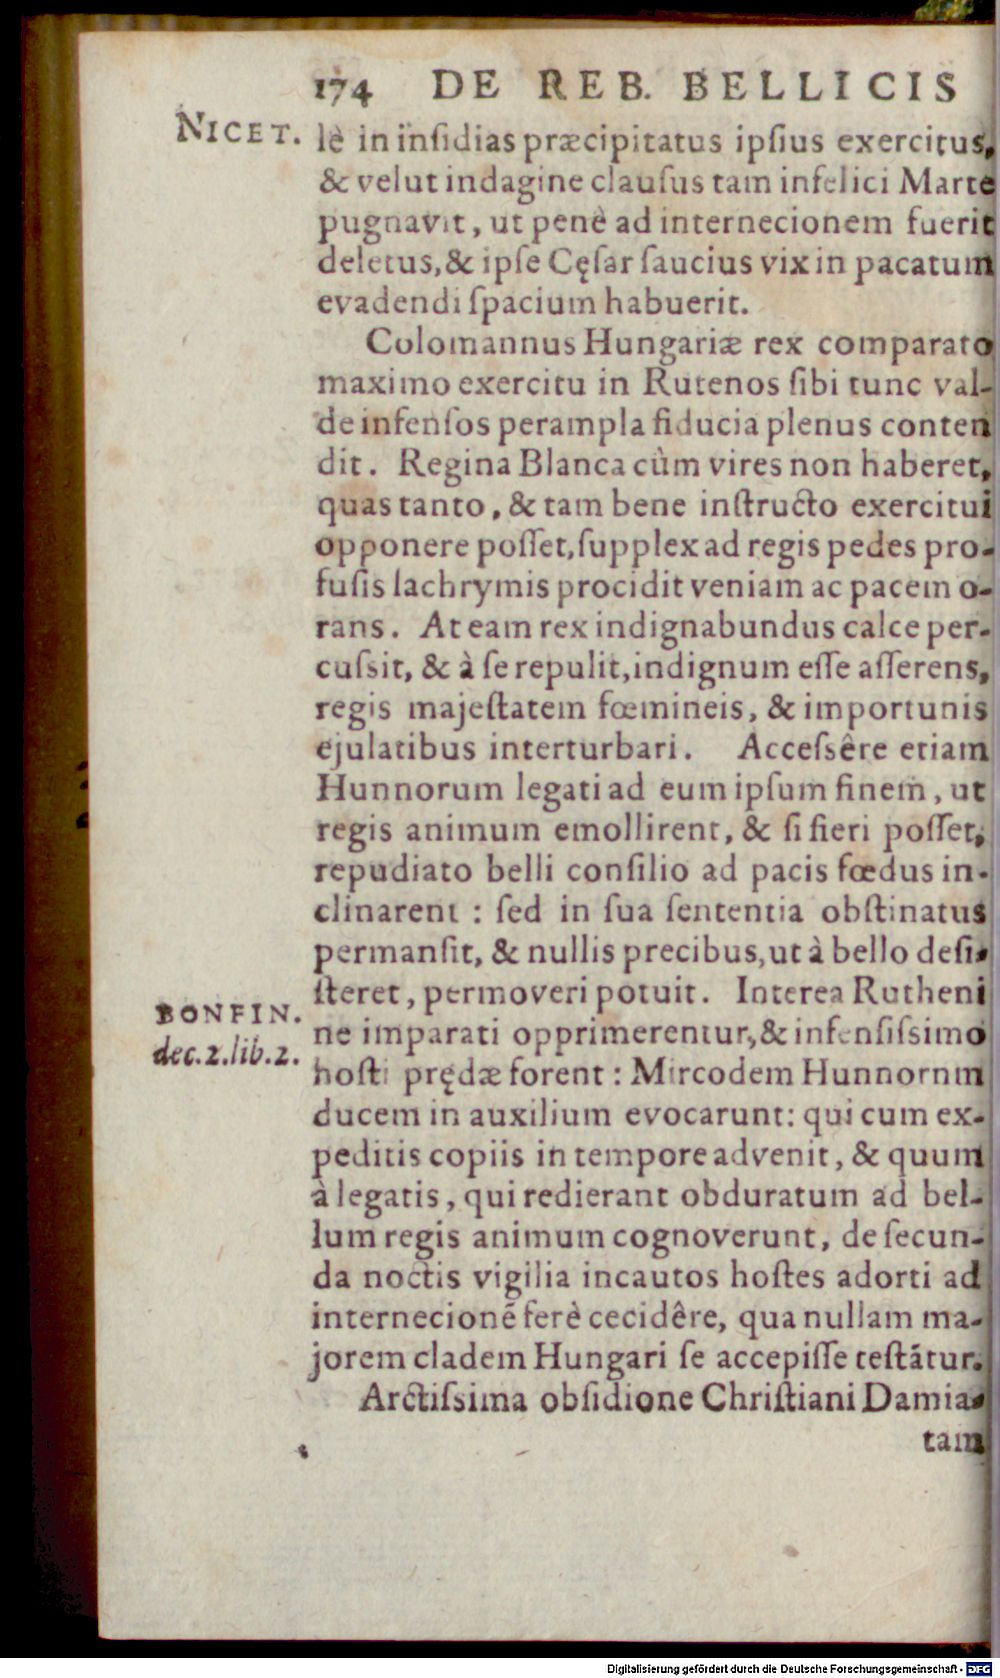 174 DE REB. BELLICIS
NICET.
lè in insidias præcipitatus ipsius exercitus,
& velut indagine clausus tam infelici Marte
pugnavit, ut penè ad internecionem fuerit
deletus, & ipse Cęsar saucius vix in pacatum
evadendi spacium habuerit.
Colomannus Hungariæ rex comparato
maximo exercitu in Rutenos sibi tunc val-
de infensos perampla fiducia plenus conten
dit. Regina Blanca cùm vires non haberet,
quas tanto, & tam bene instructo exercitui
opponere posset, supplex ad regis pedes pro-
fusis lachrymis procidit veniam ac pacem o-
rans. At eam rex indignabundus calce per-
cussit, & à se repulit, indignum esse asserens,
regis majestatem fœmineis, & importunis
ejulatibus interturbari. Accessêre etiam
Hunnorum legati ad eum ipsum finem, ut
regis animum emollirent, & si fieri posset,
repudiato belli consilio ad pacis fœdus in-
clinarent : sed in sua sententia obstinatus
permansit, & nullis precibus, ut à bello desi-
steret, permoveri potuit. Interea Rutheni
BONFIN.
dec. 2. lib. 2.
ne imparati opprimerentur, & infensissimo
hosti prędæ forent : Mircodem Hunnornm
ducem in auxilium evocarunt: qui cum ex-
peditis copiis in tempore advenit, & quum
à legatis, qui redierant obduratum ad bel-
lum regis animum cognoverunt, de secun-
da noctis vigilia incautos hostes adorti ad
internecionē ferè cecidêre, qua nullam ma-
jorem cladem Hungari se accepisse testātur.
Arctissima obsidione Christiani Damia-
tam
Digitalisierung gefördert durch die Deutsche Forschungsgemeinschaft - DFG